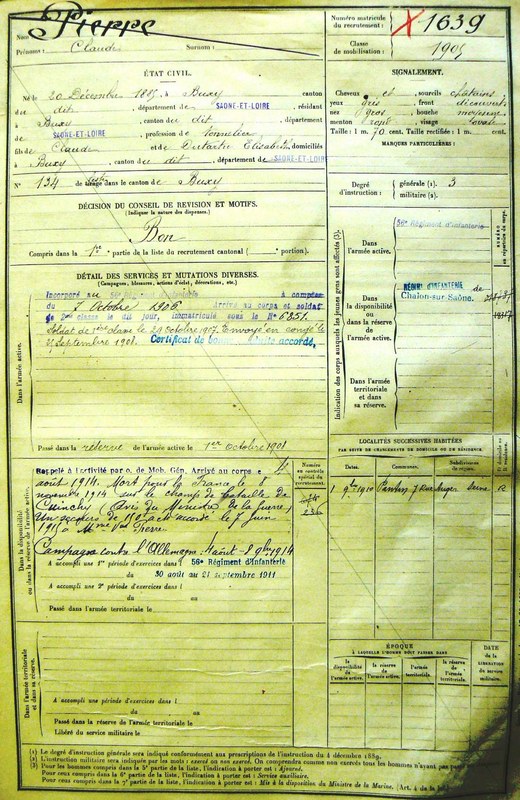 Pierre
Nom :
Prénoms : Claude Surnom :
Numéro matricule du recrutement : 1639
Classe de mobilisation : 1905
ÉTAT CIVIL.
Né le 20 Décembre 1885, à Buxy canton
du dit, département de SAONE-ET-LOIRE, résidant
à Buxy canton du dit, département
de SAONE-ET-LOIRE, profession de Tonnelier
fils de Claude et de Elisabeth, domiciliés
à Buxy, canton du dit, département de SAONE-ET-LOIRE
N° 134 de tirage dans le canton de Buxy
SIGNALEMENT.
Cheveux et sourcils châtains
yeux gris front découvert
nez gros bouche moyenne
menton rond visage ovale
Taille : 1 m. 70 cent. Taille rectifiée : 1 m. cent.
MARQUES PARTICULIÈRES :
Degré d'instruction : générale (1). 3
militaire (2).
DÉCISION DU CONSEIL DE REVISION ET MOTIFS.
(Indiquer la nature des dispenses.)
Bon
Compris dans la 1re partie de la liste du recrutement cantonal ( portion).
DÉTAIL DES SERVICES ET MUTATIONS DIVERSES.
(Campagnes, blessures, actions d'éclat, décorations, etc.)
Incorporé au à compter
du 7 Octobre 1906 Arrivé au corps et soldat
de 2me classe le dit jour, immatriculé sous le N° 6851.
Soldat de 1ère classe le 29 octobre 1907. Envoyé en congé le
septembre 1908. Certificat de bonne conduite accordé.
Dans l'armée active.
Passé dans la réserve de l'armée active le 1er octobre 1908
Indication des corps auxquels les jeunes gens sont affectés (3).
Dans l'armée active.
56e Régiment d'infanterie
Dans la disponibilité ou dans la réserve de l'armée active.
RÉGIMT D'INFANTERIE de
Chalon-sur-Saône.
Dans l'armée territoriale et dans sa réserve.
Dans la disponibilité ou dans la réserve de l'armée active.
Rappelé à l'activité par o. de Mob. Gén. Arrivé au corps le 4
août 1914. Mort pour la France le 8
novembre 1914 sur le champ de bataille de
Cuinchy (avis du Ministre de la guerre)
Un secours de 150f a été accordé le 7 juin
à Mme Vve Pierre
Campagne contre l'Allemagne 4 août - 8 9bre 1914
A accompli une 1re période d'exercices dans l 56e Régiment d'Infanterie
du 30 août au 21 septembre 1911
A accompli une 2e période d'exercices dans l
du au
Passé dans l'armée territoriale le
Numéro au contrôle spécial du recrutement.
LOCALITÉS SUCCESSIVES HABITÉES
PAR SUITE DE CHANGEMENTS DE DOMICILE OU DE RÉSIDENCE.
Dates. Communes. Subdivisions de région.
1 9bre 1910 Pantin Seine R
ÉPOQUE
À LAQUELLE L'HOMME DOIT PASSER DANS
la disponibilité de l'armée active.
la réserve de l'armée active.
l'armée territoriale.
la réserve de l'armée territoriale.
DATE de la LIBÉRATION du service militaire.
Dans l'armée territoriale et dans sa réserve.
A accompli une période d'exercices dans l
du au
Passé dans la réserve de l'armée territoriale le
Libéré du service militaire le
(1) Le degré d'instruction générale sera indiqué conformément aux prescriptions de l'instruction du 4 décembre 1889.
(2) L'instruction militaire sera indiquée par les mots : exercé ou non exercé. On comprendra comme non exercés tous les hommes n'ayant pas passé
(3) Pour les hommes compris dans la 5e partie de la liste, l'indication à porter est : Ajourné.
Pour ceux compris dans la 6e partie de la liste, l'indication à porter est : Service auxiliaire.
Pour ceux compris dans la 7e partie de la liste, l'indication à porter est : Mis à la disposition du Ministre de la Marine. (Art. 4 de la loi